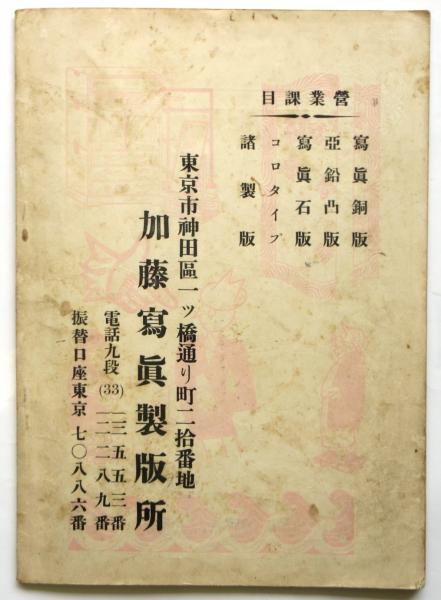 營業課目
寫眞銅版
亞鉛凸版
寫眞石版
コロタイプ
諸製版
東京市神田區一ツ橋通り町二拾番地
加藤寫眞製版所
電話九段(33)
二三五五三番
二二二八九番
振替口座東京七〇八八六番